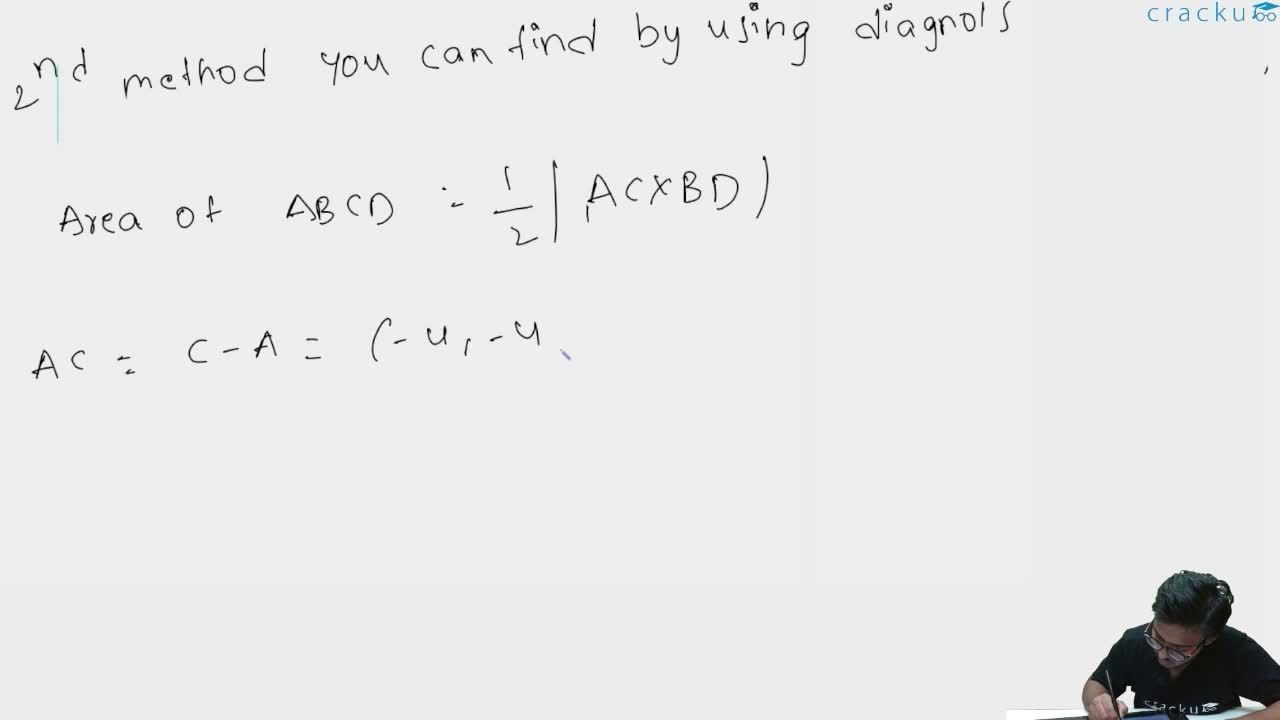 cracku
2nd method you can find by using diagnols
Area of ABCD = 1/2 |AC×BD|
AC = C-A = (-4, -4
cracku